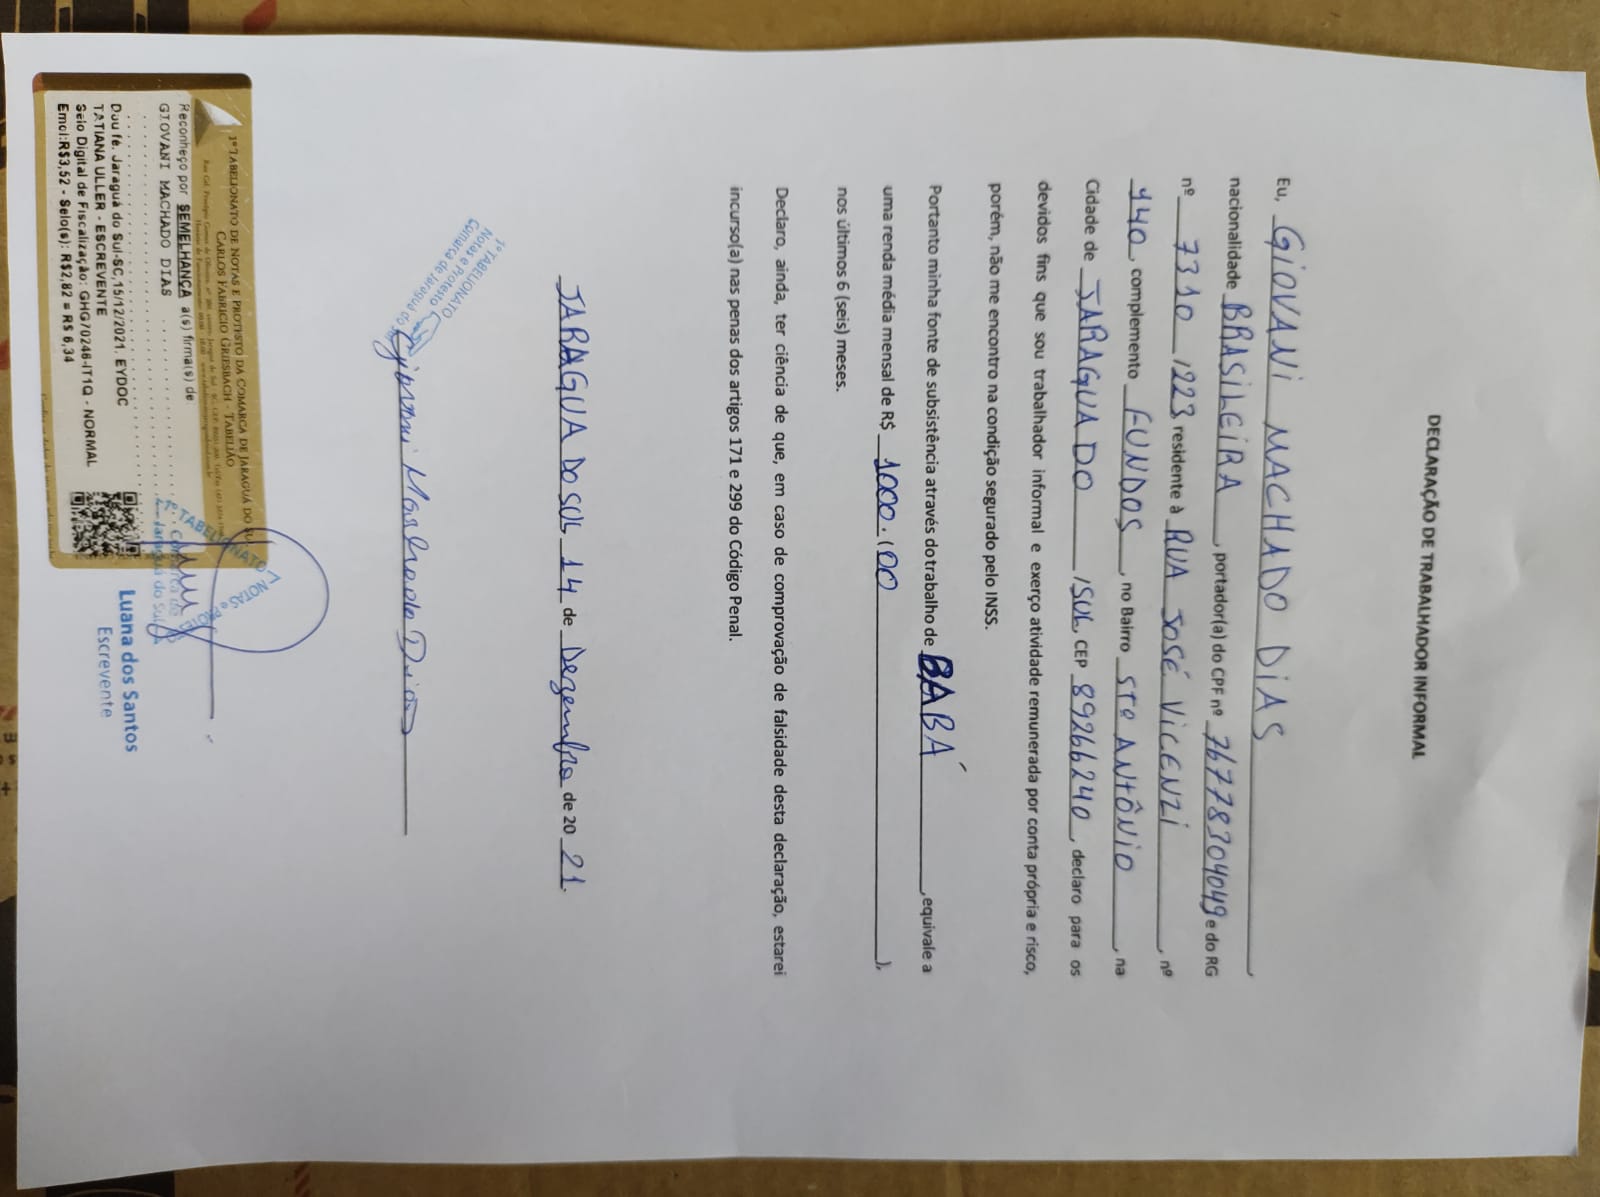 DECLARAÇÃO DE TRABALHADOR INFORMAL
Eu, GIOVANI MACHADO DIAS,
nacionalidade BRASILEIRA, portador(a) do CPF nº 76778304049 e do RG
nº 7310 1223 residente à RUA JOSÉ VICENZI, nº
440, complemento FUNDOS, no Bairro Stº ANTÔNIO, na
Cidade de JARAGUA DO /SUL, CEP 89266240, declaro para os
devidos fins que sou trabalhador informal e exerço atividade remunerada por conta própria e risco,
porém, não me encontro na condição segurado pelo INSS.
Portanto minha fonte de subsistência através do trabalho de BABÁ, equivale a
uma renda média mensal de R$ 1000.,00 ),
nos últimos 6 (seis) meses.
Declaro, ainda, ter ciência de que, em caso de comprovação de falsidade desta declaração, estarei
incurso(a) nas penas dos artigos 171 e 299 do Código Penal.
JARAGUA DO SUL 14 de Dezembro de 20 21.
1º TABELIONATO
Notas e Protesto
Comarca de Jaraguá do
Giovani Machado Dias
1º TABELIONATO DE NOTAS E PROTESTO DA COMARCA DE JARAGUÁ DO SUL
CARLOS FABRÍCIO GRIESBACH - TABELIÃO
Reconheço por SEMELHANÇA a(s) firma(s) de
GIOVANI MACHADO DIAS
Dou fé. Jaraguá do Sul-SC, 15/12/2021. EYDOC
TATIANA ULLER - ESCREVENTE
Selo Digital de Fiscalização: GHG70246-IT1Q - NORMAL
Emol:R$3,52 - Selo(s): R$2,82 = R$ 6,34
1º TABELIONATO
NOTAS e
Comarca de
Jaraguá do Sul
Luana dos Santos
Escrevente